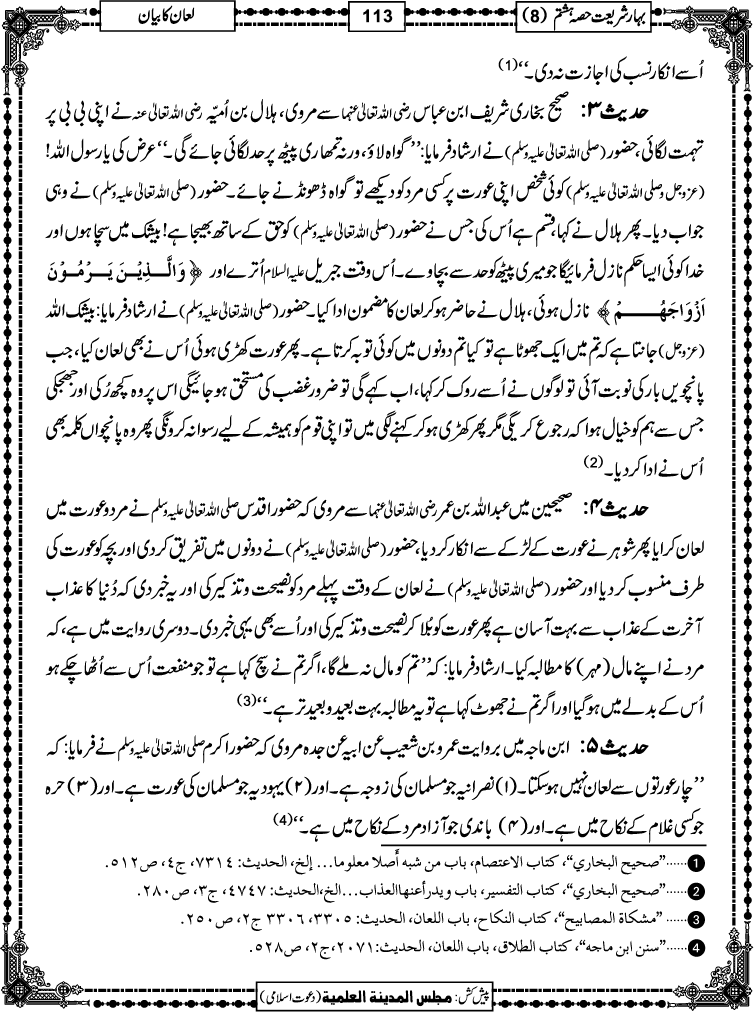 بہار شریعت حصہ ہشتم (8)
113
لعان کا بیان
اُسے انکار نسب کی اجازت نہ دی۔‘‘(1)
حدیث ۳: صحیح بخاری شریف ابن عباس رضی اللہ تعالیٰ عنہما سے مروی، ہلال بن اُمیّہ رضی اللہ تعالیٰ عنہ نے اپنی بی بی پر
تہمت لگائی، حضور (صلی اللہ تعالیٰ علیہ وسلم) نے ارشاد فرمایا: ’’گواہ لاؤ، ورنہ تمھاری پیٹھ پر حد لگائی جائے گی۔‘‘ عرض کی یارسول اللہ!
(عزوجل و صلی اللہ تعالیٰ علیہ وسلم) کوئی شخص اپنی عورت پر کسی مرد کو دیکھے تو گواہ ڈھونڈنے جائے۔ حضور (صلی اللہ تعالیٰ علیہ وسلم) نے وہی
جواب دیا۔ پھر ہلال نے کہا، قسم ہے اُس کی جس نے حضور (صلی اللہ تعالیٰ علیہ وسلم) کو حق کے ساتھ بھیجا ہے! بیشک میں سچا ہوں اور
خدا کوئی ایسا حکم نازل فرمائیگا جو میری پیٹھ کو حد سے بچاوے۔ اُس وقت جبریل علیہ السلام اُترے اور ﴿ وَالَّذِیْنَ یَرْمُوْنَ
اَزْوَاجَهُمْ ﴾ نازل ہوئی، ہلال نے حاضر ہوکر لعان کا مضمون ادا کیا۔ حضور (صلی اللہ تعالیٰ علیہ وسلم) نے ارشاد فرمایا: بیشک اللہ
(عزوجل) جانتا ہے کہ تم میں ایک جھوٹا ہے تو کیا تم دونوں میں کوئی توبہ کرتا ہے۔ پھر عورت کھڑی ہوئی اُس نے بھی لعان کیا، جب
پانچویں بار کی نوبت آئی تو لوگوں نے اُسے روک کر کہا، اب کہے گی تو ضرور غضب کی مستحق ہوجائیگی اس پر وہ کچھ رُکی اور جھجکی
جس سے ہم کو خیال ہوا کہ رجوع کریگی مگر پھر کھڑی ہو کر کہنے لگی میں تو اپنی قوم کو ہمیشہ کے لیے رسوا نہ کرونگی پھر وہ پانچواں کلمہ بھی
اُس نے ادا کر دیا۔(2)
حدیث ۴: صحیحین میں عبداللہ بن عمر رضی اللہ تعالیٰ عنہما سے مروی کہ حضور اقدس صلی اللہ تعالیٰ علیہ وسلم نے مرد و عورت میں
لعان کرایا پھر شوہر نے عورت کے لڑکے سے انکار کر دیا، حضور (صلی اللہ تعالیٰ علیہ وسلم) نے دونوں میں تفریق کر دی اور بچہ کو عورت کی
طرف منسوب کر دیا اور حضور (صلی اللہ تعالیٰ علیہ وسلم) نے لعان کے وقت پہلے مرد کو نصیحت و تذکیر کی اور یہ خبر دی کہ دُنیا کا عذاب
آخرت کے عذاب سے بہت آسان ہے پھر عورت کو بُلا کر نصیحت و تذکیر کی اور اُسے بھی یہی خبر دی۔ دوسری روایت میں ہے، کہ
مرد نے اپنے مال (مہر) کا مطالبہ کیا۔ ارشاد فرمایا: کہ ’’تم کو مال نہ ملے گا، اگر تم نے سچ کہا ہے تو جو منفعت اُس سے اُٹھا چکے ہو
اُس کے بدلے میں ہوگیا اور اگر تم نے جھوٹ کہا ہے تو یہ مطالبہ بہت بعید و بعید تر ہے۔‘‘(3)
حدیث ۵: ابن ماجہ میں بروایت عمرو بن شعیب عن ابیہ عن جدہ مروی کہ حضور اکرم صلی اللہ تعالیٰ علیہ وسلم نے فرمایا: کہ
’’چار عورتوں سے لعان نہیں ہوسکتا۔ (۱) نصرانیہ جو مسلمان کی زوجہ ہے۔ اور (۲) یہودیہ جو مسلمان کی عورت ہے۔ اور (۳) حرہ
جو کسی غلام کے نکاح میں ہے۔ اور (۴) باندی جو آزاد مرد کے نکاح میں ہے۔‘‘(4)
1......”صحيح البخاري“، كتاب الاعتصام، باب من شبه أصلا معلوما... إلخ، الحديث: ٧٣١٤، ج٤، ص٥١٢.
2......”صحيح البخاري“، كتاب التفسير، باب ويدرأ عنها العذاب...الخ، الحديث: ٤٧٤٧، ج٣، ص٢٨٠.
3...... ”مشكاة المصابيح“، كتاب النكاح، باب اللعان، الحديث: ٣٣٠٥، ٣٣٠٦ ج٢، ص٢٥٠.
4......”سنن ابن ماجه“، كتاب الطلاق، باب اللعان، الحديث: ٢٠٧١، ج٢، ص٥٢٨.
پیش کش: مجلس المدینة العلمیة (دعوت اسلامی)